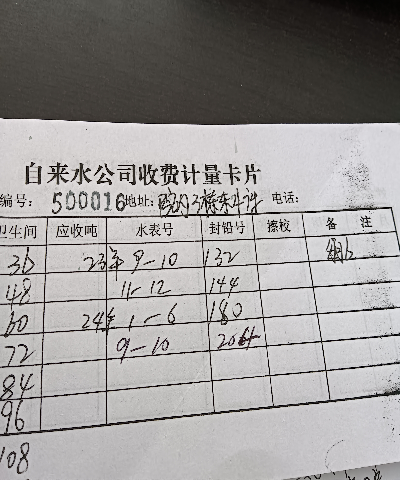 自来水公司收费计量卡片
编号: 500016 地址: 院内3栋东 电话:
卫生间 应收吨 水表号 封铅号 擦校 备 注
36 23年 9-10 132
48 11-12 144
60 24年 1-6 180
72 9-10 204
84
96
108